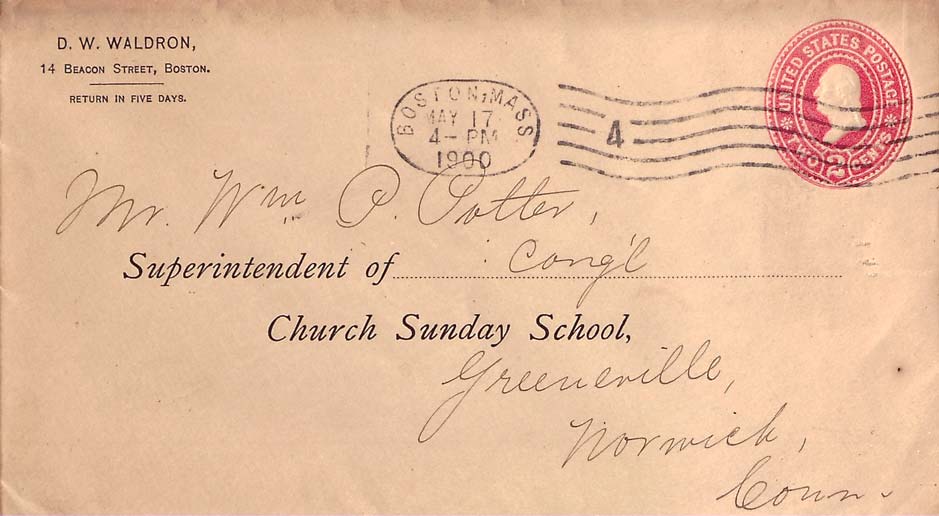 D. W. WALDRON,
14 BEACON STREET, BOSTON.
RETURN IN FIVE DAYS.
BOSTON, MASS
MAY 17
4 - PM
1900
4
UNITED STATES POSTAGE
TWO 2 CENTS
Mr. Wm P. Potter,
Superintendent of Cong'l
Church Sunday School,
Greeneville,
Norwich,
Conn.